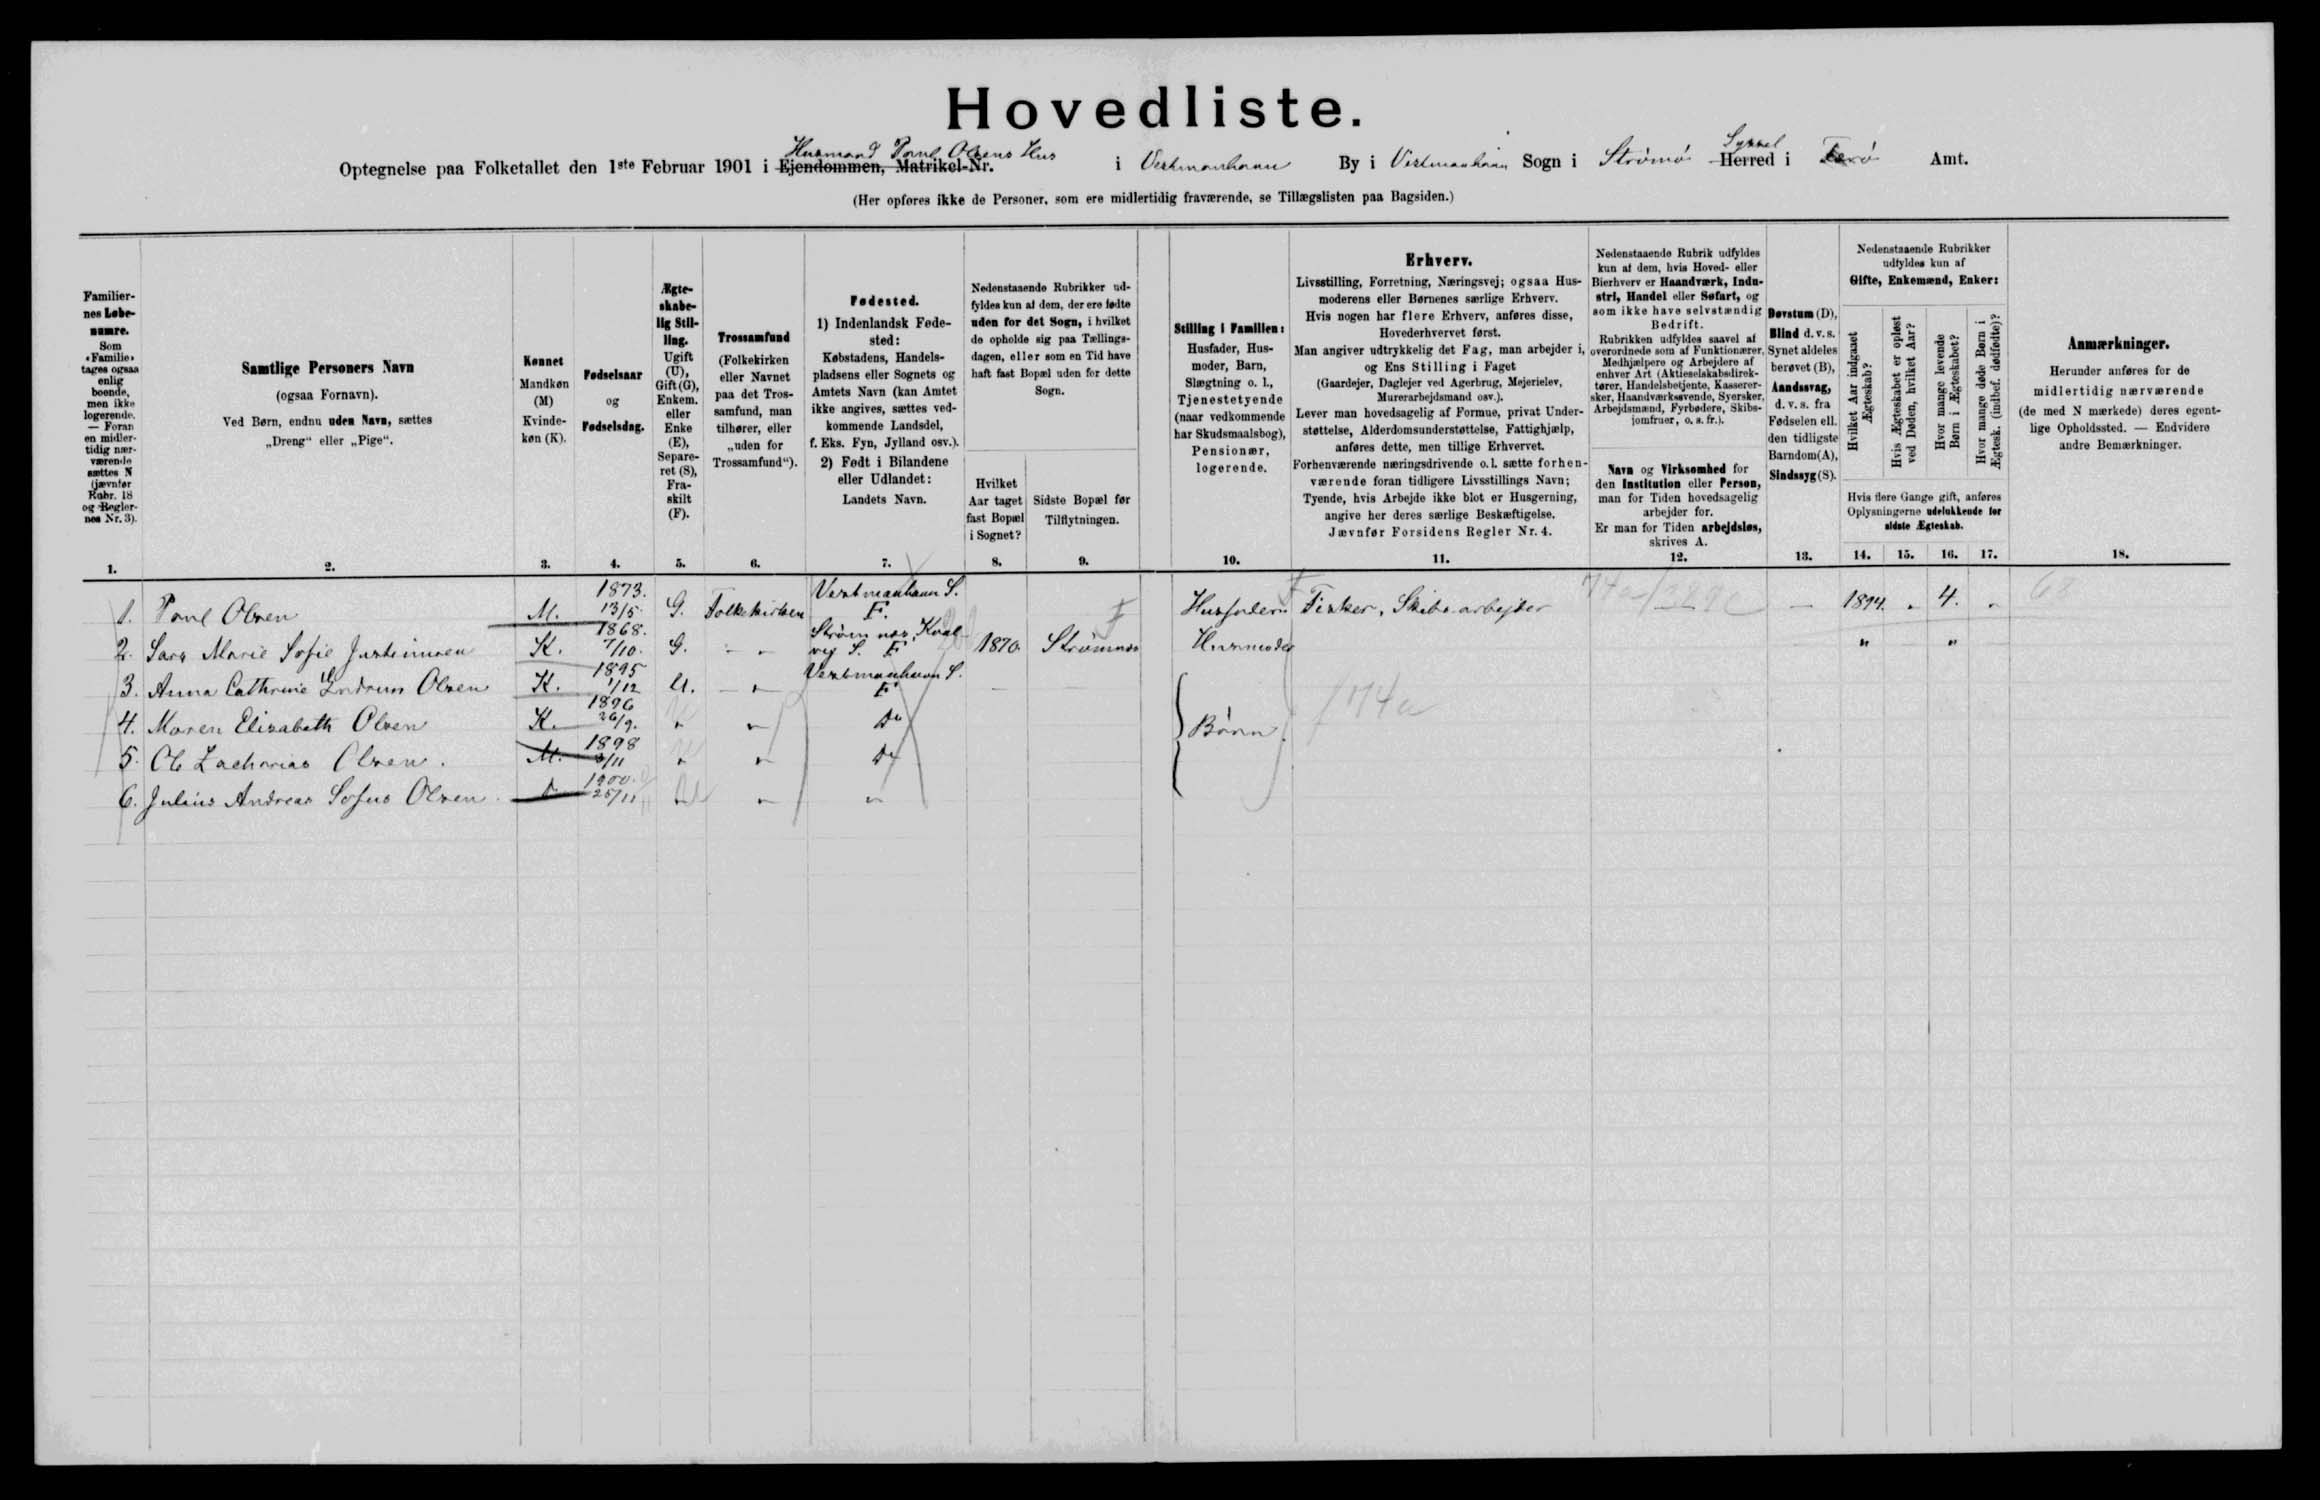 Hovedliste.
Husmand Poul Olsens Hus
Optegnelse paa Folketallet den 1ste Februar 1901 i Ejendommen, Matrikel-Nr. i Vestmanhavn By i Vestmanhavn Sogn i Strømø Syssel Herred i Færø Amt.
(Her opføres ikke de Personer, som ere midlertidig fraværende, se Tillægslisten paa Bagsiden.)
Familiernes Løbenumre.
Som «Familie» tages ogsaa enlig boende, men ikke logerende. — Foran en midlertidig nærværende sættes N (jævnfør Rubr. 18 og Reglernes Nr. 3).
1.
Samtlige Personers Navn
(ogsaa Fornavn).
Ved Børn, endnu uden Navn, sættes
„Dreng“ eller „Pige“.
2.
Kønnet
Mandkøn
(M)
Kvinde-
køn (K).
3.
Fødselsaar
og
Fødselsdag.
4.
Ægte-
skabe-
lig Stil-
ling.
Ugift
(U),
Gift (G),
Enkem.
eller
Enke
(E),
Separe-
ret (S),
Fra-
skilt
(F).
5.
Trossamfund
(Folkekirken
eller Navnet
paa det Tros-
samfund, man
tilhører, eller
„uden for
Trossamfund“).
6.
Fødested.
1) Indenlandsk Føde-
sted:
Købstadens, Handels-
pladsens eller Sognets og
Amtets Navn (kan Amtet
ikke angives, sættes ved-
kommende Landsdel,
f. Eks. Fyn, Jylland osv.).
2) Født i Bilandene
eller Udlandet:
Landets Navn.
7.
Nedenstaaende Rubrikker ud-
fyldes kun af dem, der ere fødte
uden for det Sogn, i hvilket
de opholde sig paa Tællings-
dagen, eller som en Tid have
haft fast Bopæl uden for dette
Sogn.
Hvilket
Aar taget
fast Bopæl
i Sognet?
8.
Sidste Bopæl før
Tilflytningen.
9.
Stilling i Familien:
Husfader, Hus-
moder, Barn,
Slægtning o. l.,
Tjenestetyende
(naar vedkommende
har Skudsmaalsbog),
Pensionær,
logerende.
10.
Erhverv.
Livsstilling, Forretning, Næringsvej; ogsaa Hus-
moderens eller Børnenes særlige Erhverv.
Hvis nogen har flere Erhverv, anføres disse,
Hovederhvervet først.
Man angiver udtrykkelig det Fag, man arbejder i,
og Ens Stilling i Faget
(Gaardejer, Daglejer ved Agerbrug, Mejerielev,
Murerarbejdsmand osv.).
Lever man hovedsagelig af Formue, privat Under-
støttelse, Alderdomsunderstøttelse, Fattighjælp,
anføres dette, men tillige Erhvervet.
Forhenværende næringsdrivende o. l. sætte forhen-
værende foran tidligere Livsstillings Navn;
Tyende, hvis Arbejde ikke blot er Husgerning,
angive her deres særlige Beskæftigelse.
Jævnfør Forsidens Regler Nr. 4.
11.
Nedenstaaende Rubrik udfyldes
kun af dem, hvis Hoved- eller
Bierhverv er Haandværk, Indu-
stri, Handel eller Søfart, og
som ikke have selvstændig
Bedrift.
Rubrikken udfyldes saavel af
overordnede som af Funktionærer,
Medhjælpere og Arbejdere af
enhver Art (Aktieselskabsdirek-
tører, Handelsbetjente, Kasserer-
sker, Haandværkssvende, Syersker,
Arbejdsmænd, Fyrbødere, Skibs-
jomfruer, o. s. fr.).
Navn og Virksomhed for
den Institution eller Person,
man for Tiden hovedsagelig
arbejder for.
Er man for Tiden arbejdsløs,
skrives A.
12.
Døvstum (D),
Blind d. v. s.
Synet aldeles
berøvet (B),
Aandssvag,
d. v. s. fra
Fødselen ell.
den tidligste
Barndom (A),
Sindssyg (S).
13.
Nedenstaaende Rubrikker
udfyldes kun af
Gifte, Enkemænd, Enker:
Hvilket Aar indgaaet Ægteskab?
Hvis Ægteskabet er opløst ved Døden, hvilket Aar?
Hvor mange levende Børn i Ægteskabet?
Hvor mange døde Børn i Ægtesk. (indbef. dødfødte)?
Hvis flere Gange gift, anføres
Oplysningerne udelukkende for
sidste Ægteskab.
14. 15. 16. 17.
Anmærkninger.
Herunder anføres for de
midlertidig nærværende
(de med N mærkede) deres egent-
lige Opholdssted. — Endvidere
andre Bemærkninger.
18.
1. Poul Olsen M. 1873. 13/5 G. Folkekirken Vestmanhavn S. F. Husfader Fisker, Skibsarbejder — 1894. " 4. " 68
2. Sara Marie Sofie Justinussen K. 1868. 7/10. G. " " Strømnæs, Kvalvig S. F 1870. Strømnæs Husmoder " "
3. Anna Cathrine Olsen K. 1895 1/12 U. " Vestmanhavn S. F
4. Maren Elisabeth Olsen K. 1896 26/9. " " Do Børn. 174a
5. Ole Zacharias Olsen. M. 1898 3/11 " " Do
6. Julius Andreas Sofus Olsen. 1900. 25/11 " " "